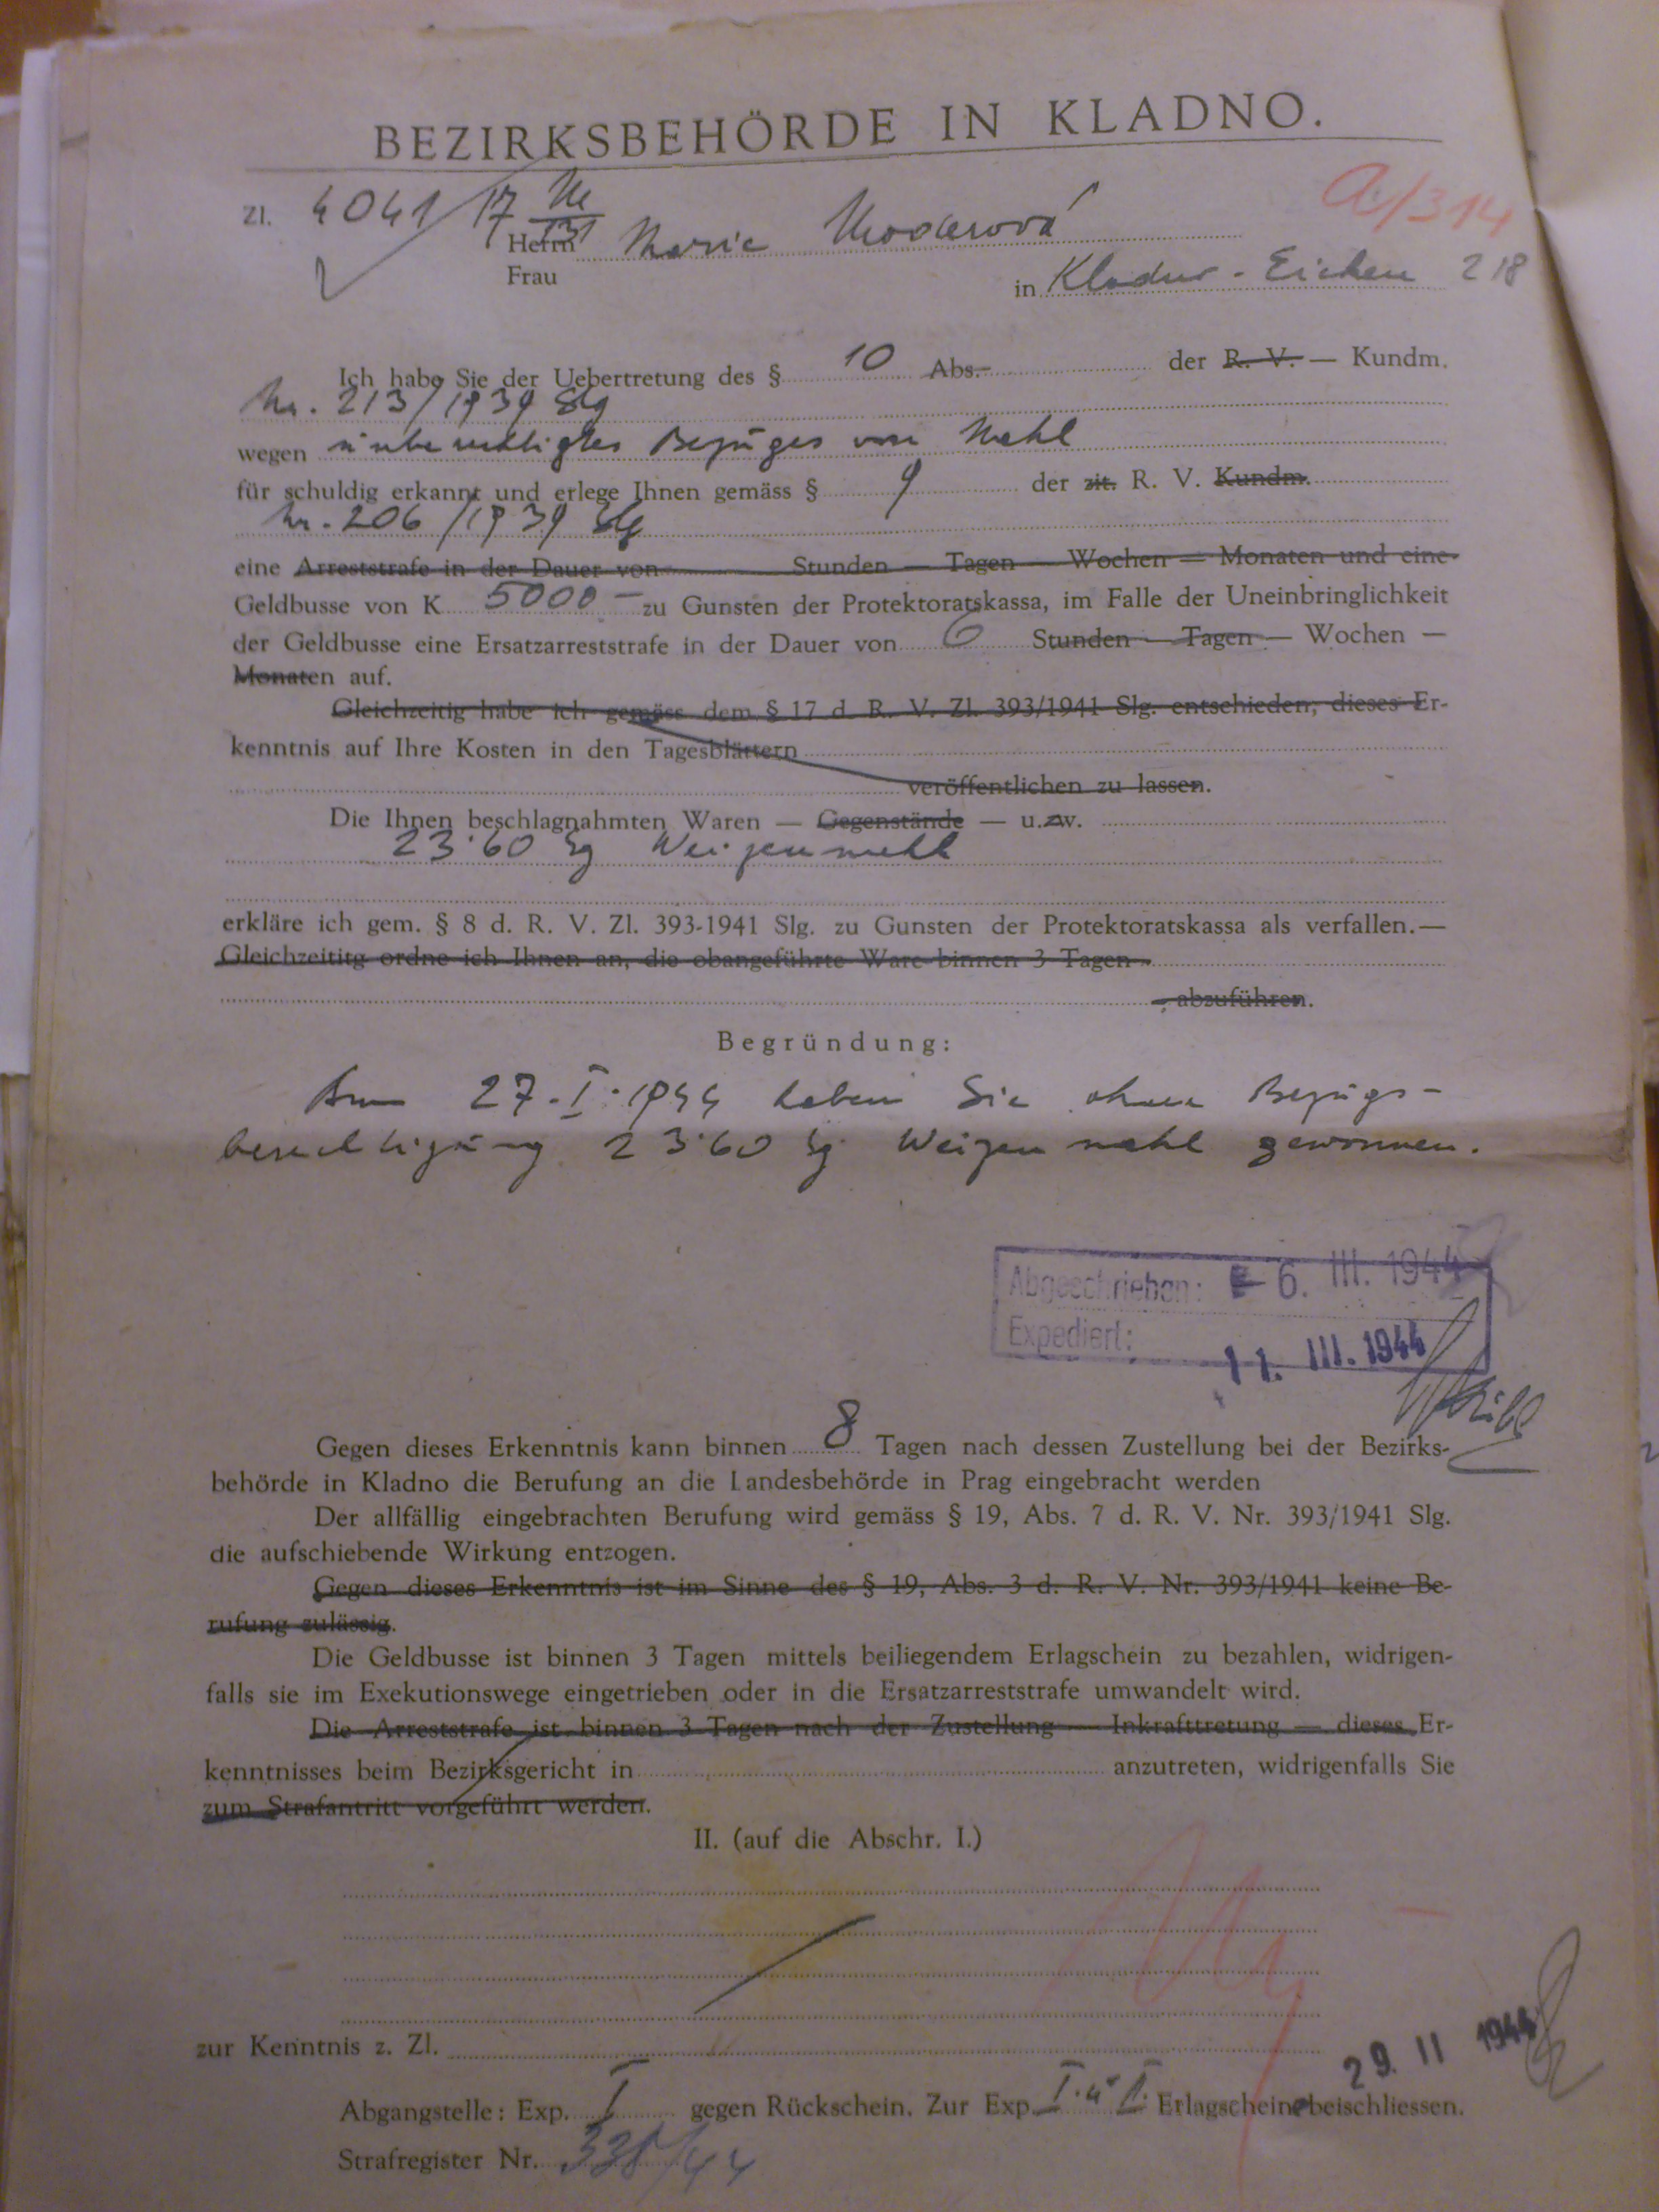 BEZIRKSBEHÖRDE IN KLADNO.
A/314
Zl. 4041/17
Herrn Marie
Frau
in Kladno - Eichen 218
Ich habe Sie der Uebertretung des § 10 Abs. der R. V. — Kundm.
Nr. 213/1939 Slg
wegen unberechtigtes Bezuges von Mehl
für schuldig erkannt und erlege Ihnen gemäss § 9 der zit. R. V. Kundm.
Nr. 206/1939 Slg
eine Arreststrafe in der Dauer von Stunden — Tagen — Wochen — Monaten und eine
Geldbusse von K 5000 — zu Gunsten der Protektoratskassa, im Falle der Uneinbringlichkeit
der Geldbusse eine Ersatzarreststrafe in der Dauer von 6 Stunden — Tagen — Wochen —
Monaten auf.
Gleichzeitig habe ich gemäss dem § 17 d. R. V. Zl. 393/1941 Slg. entschieden, dieses Er-
kenntnis auf Ihre Kosten in den Tagesblättern
veröffentlichen zu lassen.
Die Ihnen beschlagnahmten Waren — Gegenstände — u.zw.
23·60 kg Weizenmehl
erkläre ich gem. § 8 d. R. V. Zl. 393-1941 Slg. zu Gunsten der Protektoratskassa als verfallen.—
Gleichzeititg ordne ich Ihnen an, die obangeführte Ware binnen 3 Tagen
, abzuführen.
Begründung:
Am 27.I.1944 haben Sie ohne Bezugs-
berechtigung 23·60 kg Weizenmehl gewonnen.
Abgeschrieben: 6. III. 1944
Expediert: 11. III. 1944
Gegen dieses Erkenntnis kann binnen 8 Tagen nach dessen Zustellung bei der Bezirks-
behörde in Kladno die Berufung an die Landesbehörde in Prag eingebracht werden
Der allfällig eingebrachten Berufung wird gemäss § 19, Abs. 7 d. R. V. Nr. 393/1941 Slg.
die aufschiebende Wirkung entzogen.
Gegen dieses Erkenntnis ist im Sinne des § 19, Abs. 3 d. R. V. Nr. 393/1941 keine Be-
rufung zulässig.
Die Geldbusse ist binnen 3 Tagen mittels beiliegendem Erlagschein zu bezahlen, widrigen-
falls sie im Exekutionswege eingetrieben oder in die Ersatzarreststrafe umwandelt wird.
Die Arreststrafe ist binnen 3 Tagen nach der Zustellung — Inkrafttretung — dieses Er-
kenntnisses beim Bezirksgericht in anzutreten, widrigenfalls Sie
zum Strafantritt vorgeführt werden.
II. (auf die Abschr. I.)
zur Kenntnis z. Zl.
29. II 1944
Abgangstelle: Exp. I gegen Rückschein. Zur Exp. I. u. II. Erlagscheine beischliessen.
Strafregister Nr. 338/44